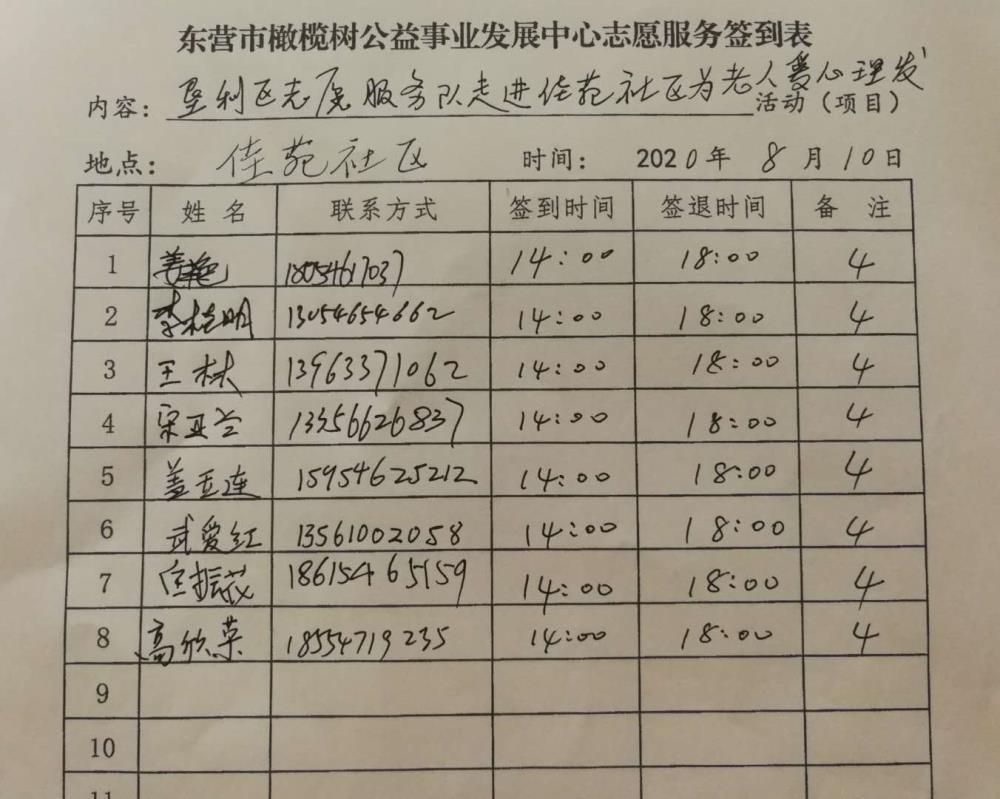 东营市橄榄树公益事业发展中心志愿服务签到表
内容：垦利区志愿服务队走进佳苑社区为老人爱心理发活动（项目）
地点：佳苑社区 时间：2020年8月10日
序号 姓名 联系方式 签到时间 签退时间 备注
1 姜艳 18054617037 14:00 18:00 4
2 李桂明 13054654662 14:00 18:00 4
3 王林 13963371062 14:00 18:00 4
4 宋亚兰 13356626837 14:00 18:00 4
5 盖亚连 15954625212 14:00 18:00 4
6 武爱红 13561002058 14:00 18:00 4
7 振花 18615465159 14:00 18:00 4
8 高欣荣 18554719235 14:00 18:00 4
9
10
11